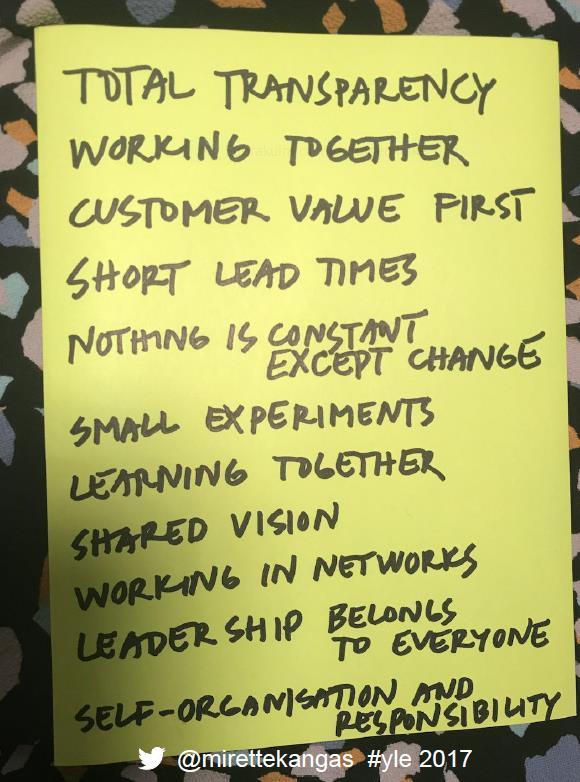 TOTAL TRANSPARENCY
WORKING TOGETHER
CUSTOMER VALUE FIRST
SHORT LEAD TIMES
NOTHING IS CONSTANT
EXCEPT CHANGE
SMALL EXPERIMENTS
LEARNING TOGETHER
SHARED VISION
WORKING IN NETWORKS
LEADERSHIP BELONGS
TO EVERYONE
SELF-ORGANISATION AND
RESPONSIBILITY
@mirettekangas #yle 2017